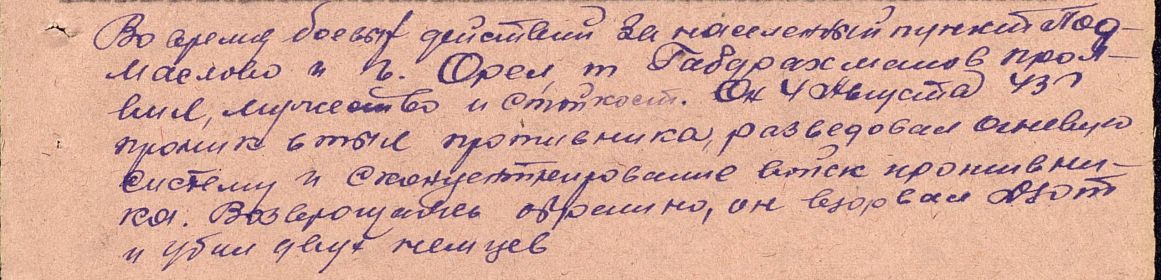 Во время боевых действий за населенный пункт Под-
маслово и г. Орел, т Габдрахманов проя-
вил, мужество и стойкост. Он 4 Августа 43г
проник в тыл противника, разведовал огневую
систему и сканцентрирование войск противни-
ка. Возврощаясь обратно, он взорвал Дзот
и убил двух немцев